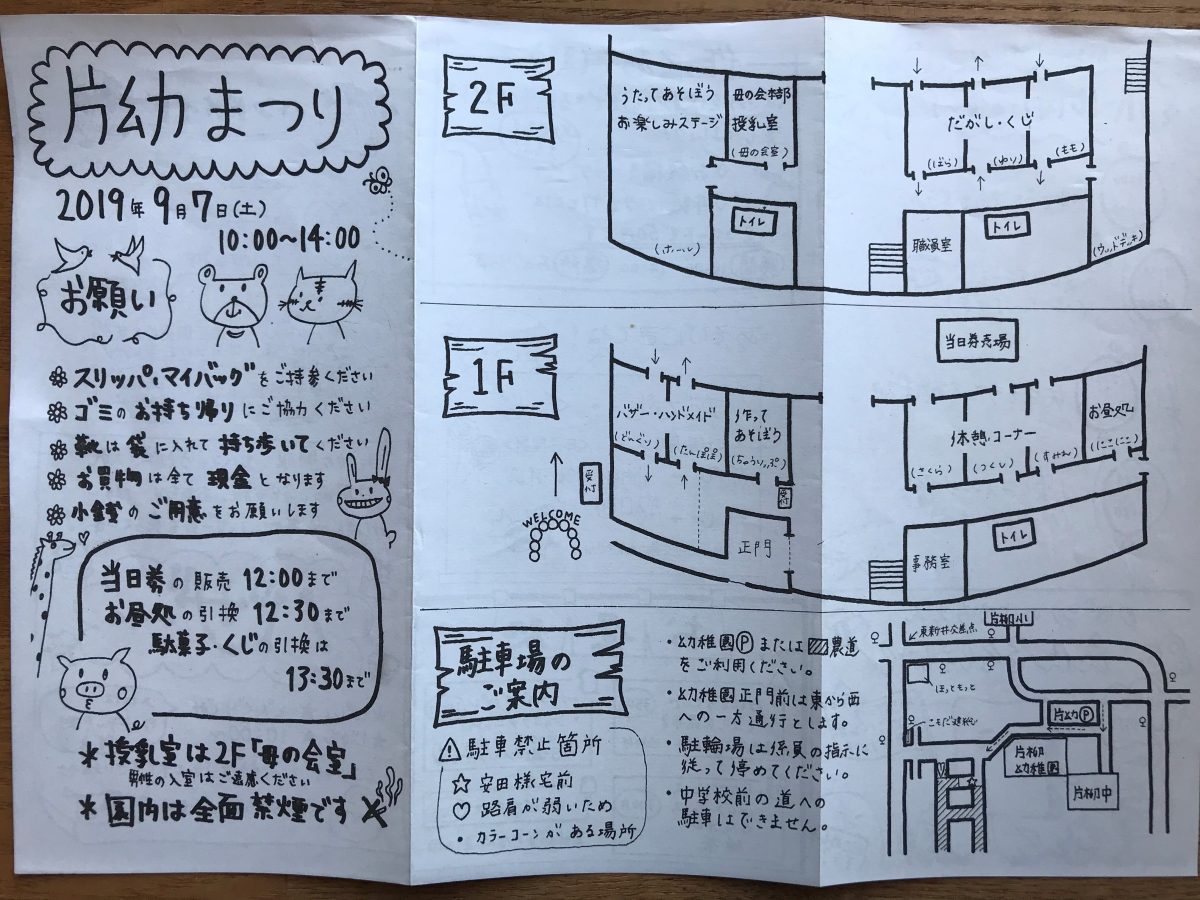 片幼まつり
2019年9月7日(土)
10:00〜14:00
お願い
スリッパ、マイバッグをご持参ください
ゴミのお持ち帰りにご協力ください
靴は袋に入れて持ち歩いてください
お買物は全て現金となります
小銭のご用意をお願いします
当日券の販売 12:00まで
お昼処の引換 12:30まで
駄菓子・くじの引換は
13:30まで
*授乳室は2F「母の会室」
男性の入室はご遠慮ください
*園内は全面禁煙です
2F
うたってあそぼう
お楽しみステージ
(ホール)
母の会本部
授乳室
(母の会室)
トイレ
だがし・くじ
(ばら)
(ゆり)
(もも)
職員室
トイレ
(ウッドデッキ)
1F
バザー・ハンドメイド
(どんぐり)
(たんぽぽ)
作って
あそぼう
(ちゅうりっぷ)
受付
受付
WELCOME
正門
当日券売場
休憩コーナー
(さくら)
(つくし)
(すみれ)
お昼処
(にこにこ)
事務室
トイレ
駐車場の
ご案内
⚠駐車禁止箇所
☆安田様宅前
♡路肩が弱いため
・カラーコーンがある場所
・幼稚園Ⓟまたは農道
をご利用ください。
・幼稚園正門前は東から西
への一方通行とします。
・駐輪場は係員の指示に
従って停めてください。
・中学校前の道への
駐車はできません。
片柳小
東新井交差点
ほっともっと
こもだ建総
片幼Ⓟ
片柳
幼稚園
片柳中